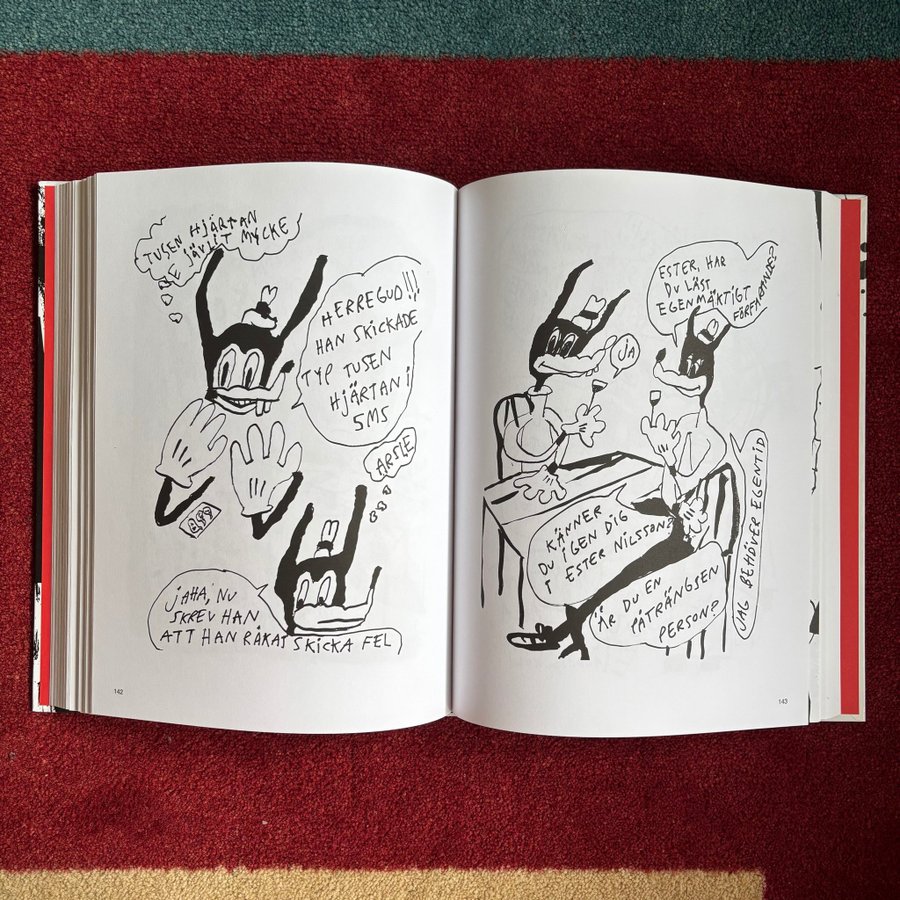 TUSEN HJÄRTAN
E JÄVLIT MYCKE
HERREGUD!!!
HAN SKICKADE
TYP TUSEN
HJÄRTAN I
SMS
ARSLE
JAHA, NU
SKREV HAN
ATT HAN RÅKAT SKICKA FEL
142
ESTER, HAR
DU LÄST
EGENMÄKTIGT
FÖRFARANDE?
JA
KÄNNER
DU IGEN DIG
I ESTER NILSSON?
ÄR DU EN
PÅTRÄNGSEN
PERSON?
JAG BEHÖVER EGENTID
143